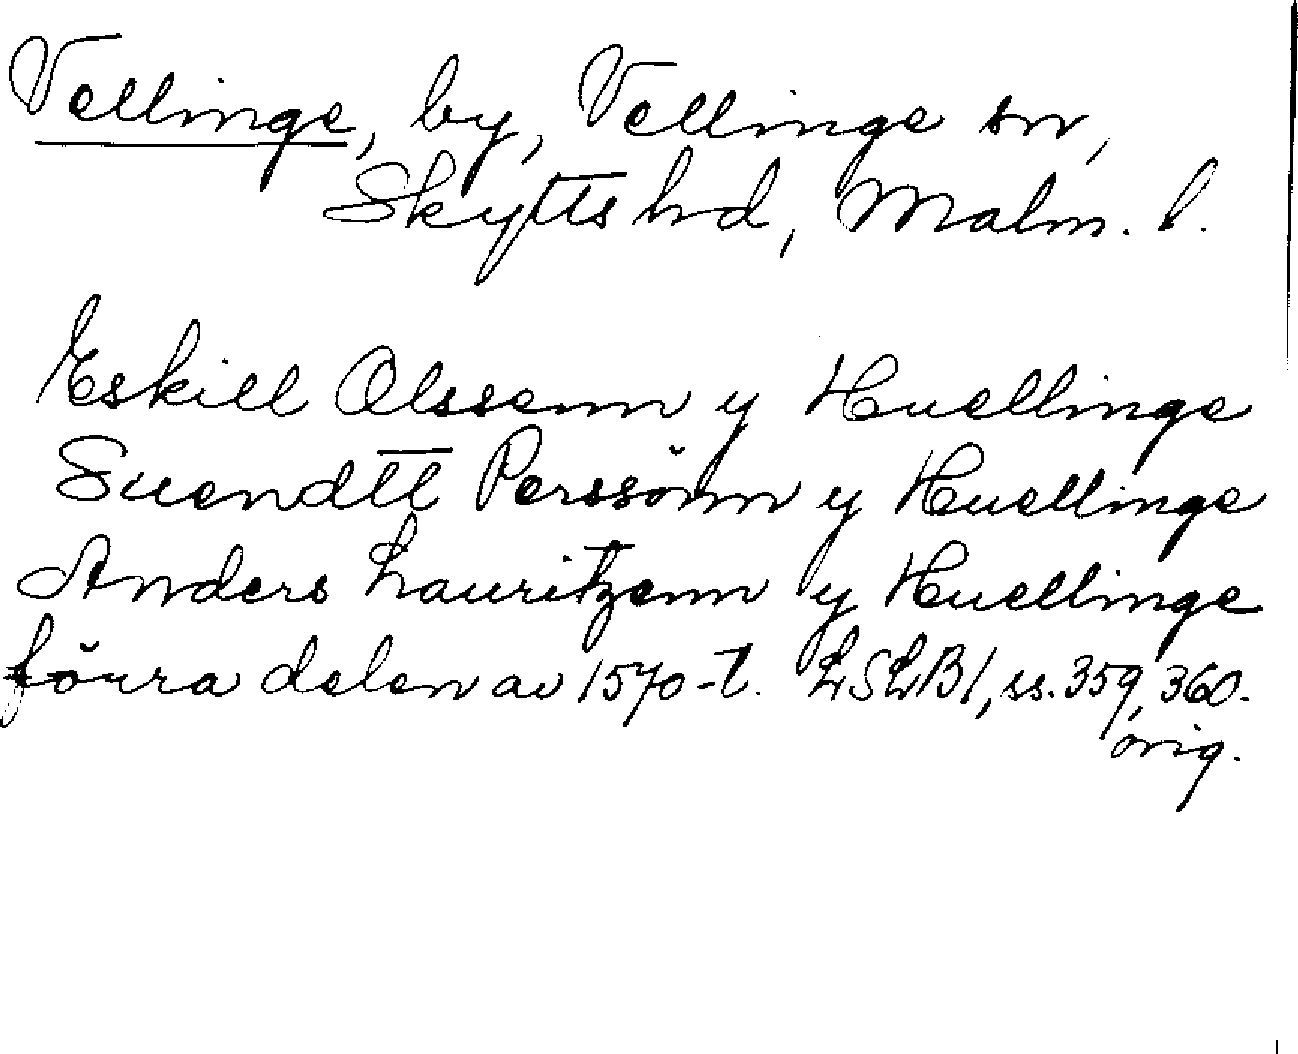 Vellinge, by, Vellinge sn,
Skytts hd, Malm. l.
Eskill Olssenn y Huellinge
Suendtt Perssönn y Huellinge
Anders Lauritzenn y Huellinge
förra delen av 1570-t. LSLB1, ss. 359, 360.
orig.